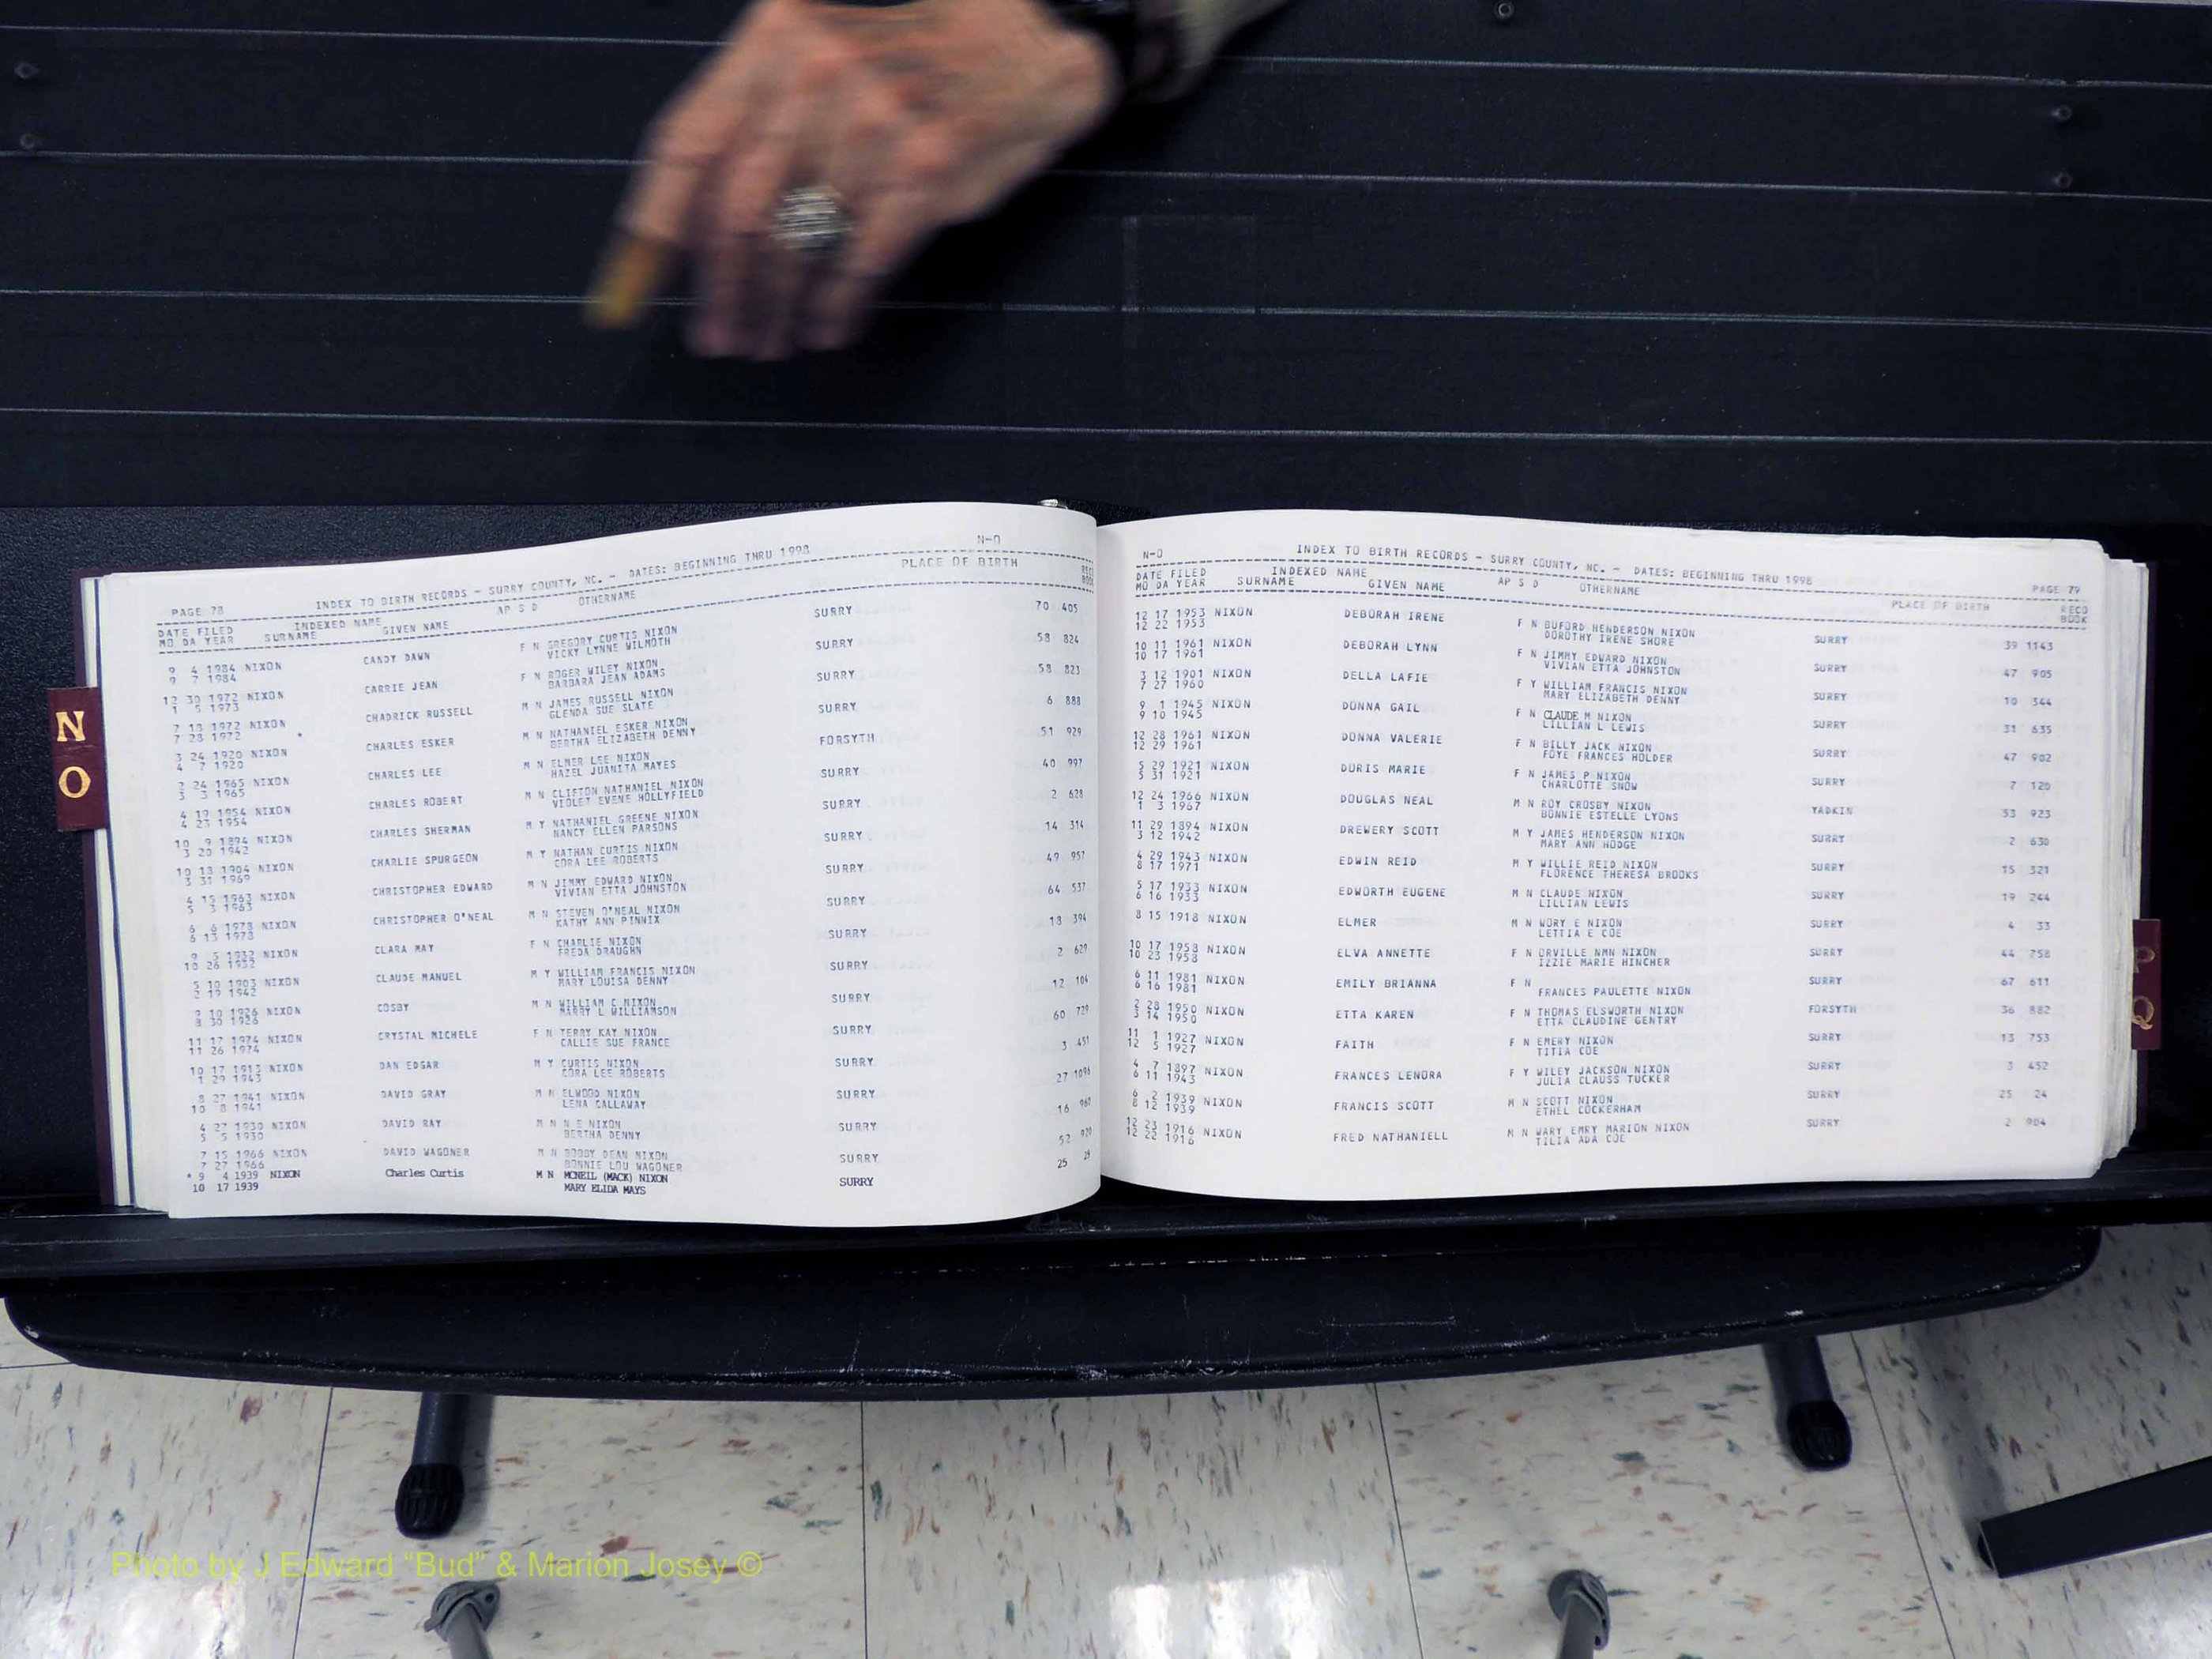 N
O
PAGE 78 INDEX TO BIRTH RECORDS - SURRY COUNTY, NC. - DATES: BEGINNING THRU 1998 N-O
DATE FILED INDEXED NAME AP S D OTHERNAME PLACE OF BIRTH
MO DA YEAR SURNAME GIVEN NAME
9 4 1984 NIXON CANDY DAWN F N GREGORY CURTIS NIXON SURRY 70 405
9 7 1984 VICKY LYNNE WILMOTH
12 30 1972 NIXON CARRIE JEAN F N ROGER WILEY NIXON SURRY 58 824
1 5 1973 BARBARA JEAN ADAMS
7 18 1972 NIXON CHADRICK RUSSELL M N JAMES RUSSELL NIXON SURRY 58 823
7 28 1972 GLENDA SUE SLATE
3 24 1920 NIXON CHARLES ESKER M N NATHANIEL ESKER NIXON SURRY 6 888
4 7 1920 BERTHA ELIZABETH DENNY
2 24 1965 NIXON CHARLES LEE M N ELMER LEE NIXON FORSYTH 51 929
3 3 1965 HAZEL JUANITA MAYES
4 19 1954 NIXON CHARLES ROBERT M N CLIFTON NATHANIEL NIXON SURRY 40 997
4 23 1954 VIOLET EVENE HOLLYFIELD
10 9 1894 NIXON CHARLES SHERMAN M Y NATHANIEL GREENE NIXON SURRY 2 628
3 20 1942 NANCY ELLEN PARSONS
10 18 1904 NIXON CHARLIE SPURGEON M Y NATHAN CURTIS NIXON SURRY 14 314
3 31 1969 CORA LEE ROBERTS
4 15 1963 NIXON CHRISTOPHER EDWARD M N JIMMY EDWARD NIXON SURRY 49 957
5 3 1963 VIVIAN ETTA JOHNSTON
6 6 1978 NIXON CHRISTOPHER O'NEAL M N STEVEN O'NEAL NIXON SURRY 64 537
6 13 1978 KATHY ANN PINNIX
9 5 1932 NIXON CLARA MAY F N CHARLIE NIXON SURRY 18 394
10 26 1932 FREDA DRAUGHN
5 10 1903 NIXON CLAUDE MANUEL M Y WILLIAM FRANCIS NIXON SURRY 2 629
2 19 1942 MARY LOUISA DENNY
10 1926 NIXON COSBY M N WILLIAM C NIXON SURRY 12 104
8 30 1926 MARRY L WILLIAMSON
11 17 1974 NIXON CRYSTAL MICHELE F N TERRY KAY NIXON SURRY 60 729
11 26 1974 CALLIE SUE FRANCE
10 17 1913 NIXON DAN EDGAR M Y CURTIS NIXON SURRY 3 451
1 29 1943 CORA LEE ROBERTS
8 27 1941 NIXON DAVID GRAY M N ELWOOD NIXON SURRY 27 1096
10 8 1941 LENA CALLAWAY
4 27 1930 NIXON DAVID RAY M N N E NIXON SURRY 16 960
5 5 1930 BERTHA DENNY
7 15 1966 NIXON DAVID WAGONER M N BOBBY DEAN NIXON SURRY 52 920
7 27 1966 BONNIE LOU WAGONER
* 9 4 1939 NIXON Charles Curtis M N MCNEIL (MACK) NIXON SURRY 25 29
10 17 1939 MARY ELIDA MAYS
N-O INDEX TO BIRTH RECORDS - SURRY COUNTY, NC. - DATES: BEGINNING THRU 1998 PAGE 79
DATE FILED INDEXED NAME AP S D OTHERNAME PLACE OF BIRTH RECD
MO DA YEAR SURNAME GIVEN NAME BOOK
12 17 1953 NIXON DEBORAH IRENE F N BUFORD HENDERSON NIXON SURRY 39 1143
12 22 1953 DOROTHY IRENE SHORE
10 11 1961 NIXON DEBORAH LYNN F N JIMMY EDWARD NIXON SURRY 47 905
10 17 1961 VIVIAN ETTA JOHNSTON
3 12 1901 NIXON DELLA LAFIE F Y WILLIAM FRANCIS NIXON SURRY 10 344
7 27 1960 MARY ELIZABETH DENNY
9 1 1945 NIXON DONNA GAIL F N CLAUDE M NIXON SURRY 31 635
9 10 1945 LILLIAN L LEWIS
12 28 1961 NIXON DONNA VALERIE F N BILLY JACK NIXON SURRY 47 902
12 29 1961 FOYE FRANCES HOLDER
5 29 1921 NIXON DORIS MARIE F N JAMES P NIXON SURRY 7 120
5 31 1921 CHARLOTTE SNOW
12 24 1966 NIXON DOUGLAS NEAL M N ROY CROSBY NIXON YADKIN 53 923
1 3 1967 BONNIE ESTELLE LYONS
11 29 1894 NIXON DREWERY SCOTT M Y JAMES HENDERSON NIXON SURRY 2 630
3 12 1942 MARY ANN HODGE
4 29 1943 NIXON EDWIN REID M Y WILLIE REID NIXON SURRY 15 321
8 17 1971 FLORENCE THERESA BROOKS
5 17 1933 NIXON EDWORTH EUGENE M N CLAUDE NIXON SURRY 19 244
6 16 1933 LILLIAN LEWIS
8 15 1918 NIXON ELMER M N WORY E NIXON SURRY 4 33
LETTIA E COE
10 17 1958 NIXON ELVA ANNETTE F N ORVILLE NMN NIXON SURRY 44 758
10 23 1958 IZZIE MARIE HINCHER
6 11 1981 NIXON EMILY BRIANNA F N SURRY 67 611
6 16 1981 FRANCES PAULETTE NIXON
2 28 1950 NIXON ETTA KAREN F N THOMAS ELSWORTH NIXON FORSYTH 36 882
3 14 1950 ETTA CLAUDINE GENTRY
11 1 1927 NIXON FAITH F N EMERY NIXON SURRY 13 753
12 5 1927 TITIA COE
4 7 1897 NIXON FRANCES LENORA F Y WILEY JACKSON NIXON SURRY 3 452
6 11 1943 JULIA CLAUSS TUCKER
6 2 1939 NIXON FRANCIS SCOTT M N SCOTT NIXON SURRY 25 24
8 12 1939 ETHEL COCKERHAM
12 23 1916 NIXON FRED NATHANIELL M N WARY EMRY MARION NIXON SURRY 2 904
12 22 1916 TILIA ADA COE
Q
Photo by J Edward “Bud” & Marion Josey ©